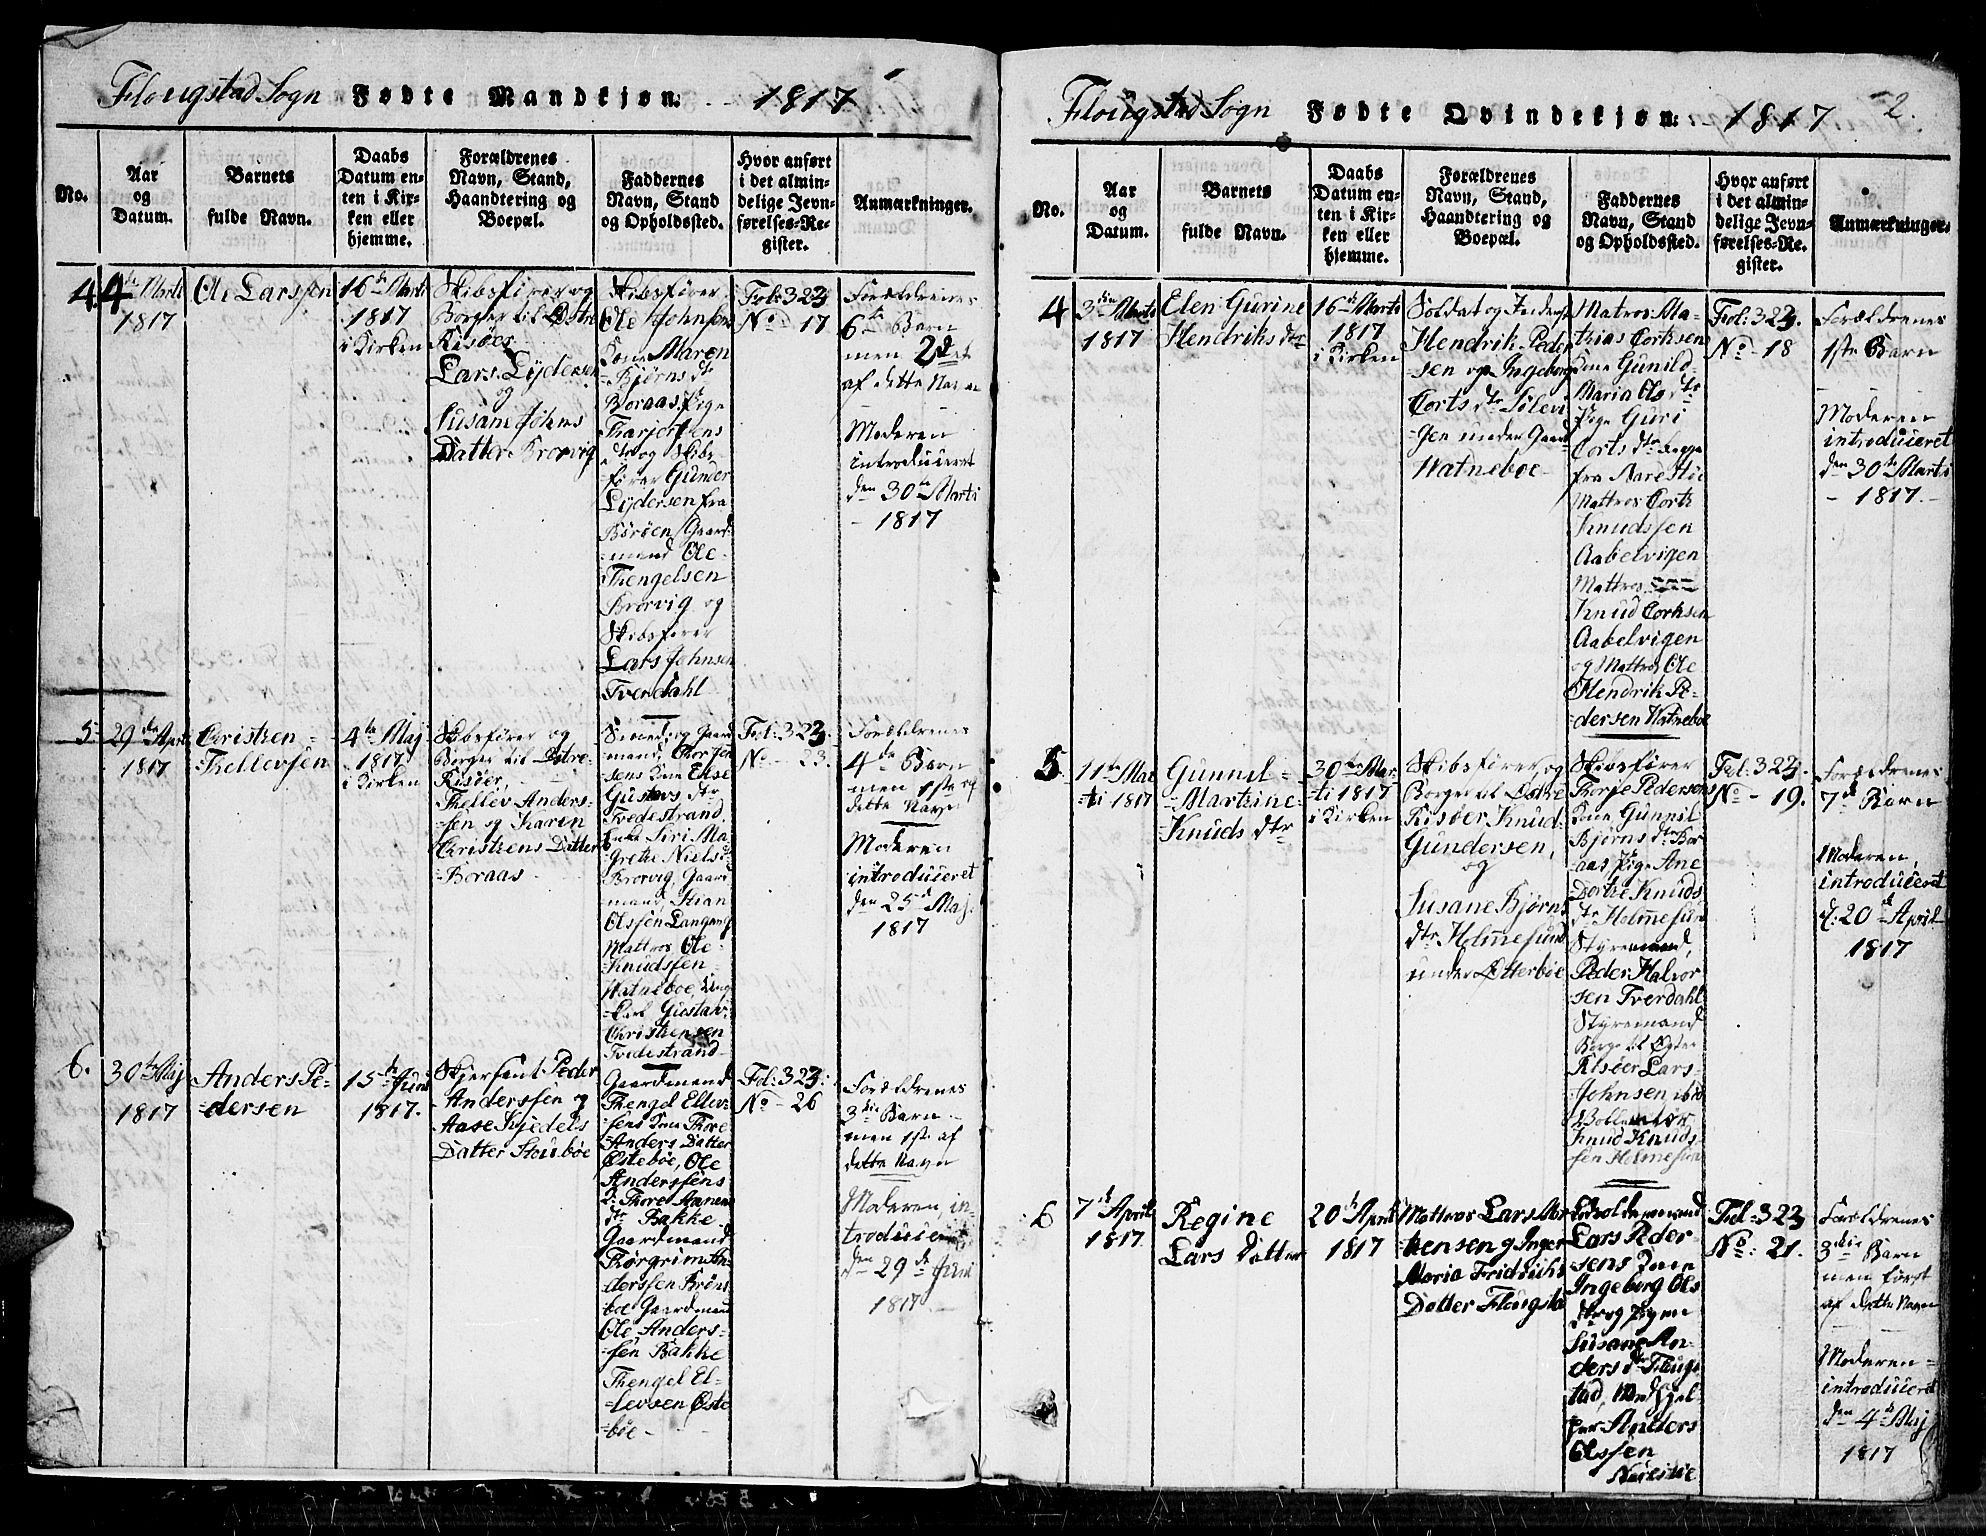 Flougstad Sogn Fødte Mandkjøn. 1817
No.
Aar
og
Datum.
Barnets
fulde Navn.
Daabs
Datum en-
ten i Kir-
ken eller
hjemme.
Forældrenes
Navn, Stand,
Haandtering og
Boepæl.
Faddernes
Navn, Stand
og Opholdssted.
Hvor anført
i det almin-
delige Jevn-
førelses-Re-
gister.
Anmærkninger.
4
4de Marti
1817
Ole Larssen
16de Marti
1817
i Kirken
Skibsfører og
Borger til Østre
Risøer
Lars Lydersen
og
Susan Johns
Datter Krorvig
Skibsfører
Ole Johnsens
Kone Maren
Bjørns dtr
Boraas, Pige
dtr og Skibs
fører Gunder
Lydersen fra
Borøen, Gaard-
mand Ole
Thengelsen
Krorvig og
Skibsfører
Lars Johnsen
Tverdahl
Fol: 323
No 17
Forældrenes
6te Barn
men 2det
af dette Navn
Moderen
introduceret
den 30te Marti
- 1817
5
29de April
1817
Christen
Thellevsen
4de Maj
1817
i Kirken
Skibsfører og
Borger til Østre
Risøer,
Thellev Anders-
sen og Karen
Christens Datter
Boraas
Smed og Gaard
mand
sens Kone Else
Gustavs dtr
Tvedestrand,
Enke Siri Ma-
grethe Niels d
Krorvig, Gaard
mand Stian
Olssen Langang
Mattros Ole
Knudssen
Watneboe, Ung-
karl Gustav
Christensen
Tvedestrand
Fol: 323.
No - 23.
Forældrenes
4de Barn
men 1ste af
dette Navn
Moderen
introduceret
den 25de Maj
1817
6.
30te Maj
1817
Anders Pe-
dersen
15de Juni
1817.
Skjersant Peder
Anderssen og
Aase Kjedels
Datter Stoubøe
Gaardmand
Thengel Ellev-
sens Kone Thore
Anders Datter
Østebøe, Ole
Anderssens
K: Thore
dtr Bakke
Gaardmand
Thorgrim An-
derssen Brøns
boe Gaardmand
Ole Anders-
sen Bakke
Thengel El-
levsen Øste
bøe
Fol: 323:
No - 26
Forældrenes
3die Barn
men 1ste af
dette Navn
Moderen in-
troduceret
den 29de Juni
1817.
Flougstad Sogn Fødte Qvindekjøn. 1817 2.
No.
Aar
og
Datum.
Barnets
fulde Navn.
Daabs
Datum en-
ten i Kir-
ken eller
hjemme.
Forældrenes
Navn, Stand,
Haandtering og
Boepæl.
Faddernes
Navn, Stand
og Opholdssted.
Hvor anført
i det almin-
delige Jevn-
førelses-Re-
gister.
Anmærkninger.
4
3die Marti
1817
Elen Gurine
Hendriks dtr
16de Marti
1817
i Kirken
Soldat og Inderst
Hendrik Peder
sen og Ingeborg
Corts dtr Solevi
gen under Gaard
Watneboe
Matros Ma-
thias Corksen
Kone Gunild
Maria Ols dtr
Pige Guri
Corts dtr
fra
Mattros Cort
Knudssen
Aabelvigen
Mattros
Knud Corksen
Aabelvigen
og Mattros Ole
Hendrik Pe-
dersen Watneboe
Fol: 323.
No - 18
Forældrenes
1ste Barn
Moderen
introduceret
den 30te Marti
- 1817. -
5.
11te Mar
ti 1817
Gunnil
Martine
Knuds dtr
30te Mar
ti 1817
i Kirken
Skibsfører og
Borger til Østre
Risøer Knud
Gundersen,
og
Susane Bjørns
dtr Holmesund
under Otterbøe
Skibsfører
Thorje Pedersens
Kone Gunnil
Bjørns dtr Bor
aas Pige Ane
Dorthe Knuds
dtr Holmesund
Styremand
Peder Halvor
sen Tverdahl
Styremand
Borger til Østre
Risøer Lars
Johnsen
Knud Knuds-
sen Holmesund
Fol: 323.
No - 19.
Forældrenes
7de Barn
Moderen
introduceret
d: 20de April
1817
6
7de April
1817
Regine
Lars Datter
20de April
1817
Mattros Lars Mor
tensen og Inger
Maria
Datter Flougstad
Lars Peder-
sens Kone
Ingeborg Ols
dtr og Pigen
Susane An-
ders dtr Floug
stad,
Anders
Olssen
Fol: 323
No: 21.
Forældrenes
3die Barn
men først
af dette Navn
Moderen
introduceret
den 4de Maj
1817